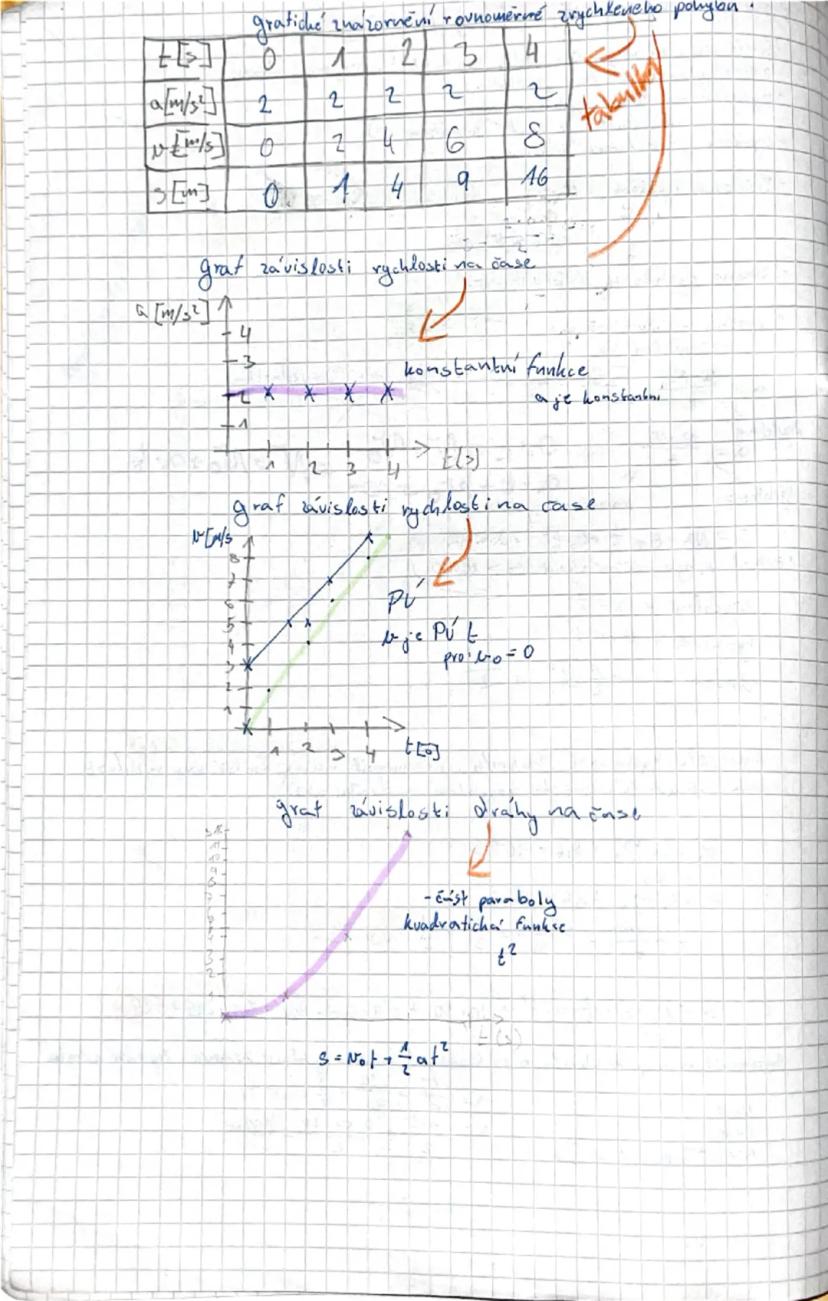 grafické znázornění rovnoměrně zrychleného pohybu.
t[s] 0 1 2 3 4
a[m/s²] 2 2 2 2 2
v[m/s] 0 2 4 6 8
s[m] 0 1 4 9 16
tabulka
graf závislosti rychlosti na čase
a [m/s²]
4
3
2
1
1 2 3 4 t(s)
konstantní funkce
a je konstantní
graf závislosti rychlosti na čase
v[m/s
8
7
6
5
4
3
2
1
1 2 3 4 t[s]
PÚ
v je PÚ t
pro: v₀ = 0
graf závislosti dráhy na čase
- část paraboly
kvadratická funkce
t²
3
2
1
t(s)
s = v₀t + 1/2 at²